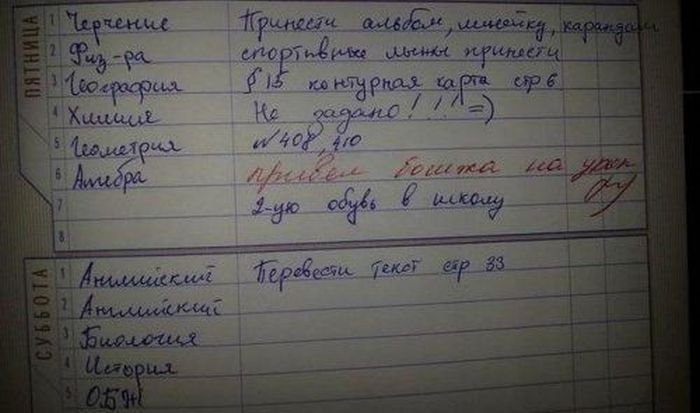 ПЯТНИЦА
1 Черчение Принести альбом, линейку, карандаш
2 Физ-ра спортивные лыжы принести
3 География § 15 контурная карта стр 6
4 Химия Не задано!!! =)
5 Геометрия №408, 410
6 Алгебра привел бомжа на урок
7 2-ую обувь в школу
8
СУББОТА
1 Английский Перевести текст стр 33
2 Английский
3 Биология
4 История
5 ОБЖ